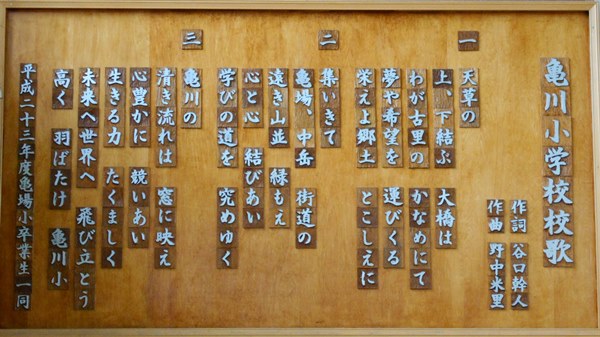 亀川小学校校歌
作詞 谷口幹人
作曲 野中米里
一
天草の
上、下結ぶ 大橋は
わが古里の かなめにて
夢や希望を 運びくる
栄えよ郷土 とこしえに
二
集いきて
亀場、中岳 街道の
遠き山並 緑もえ
心と心 結びあい
学びの道を 究めゆく
三
亀川の
清き流れは 窓に映え
心豊かに 競いあい
生きる力 たくましく
未来へ世界へ 飛び立とう
高く 羽ばたけ 亀川小
平成二十三年度亀場小卒業生一同